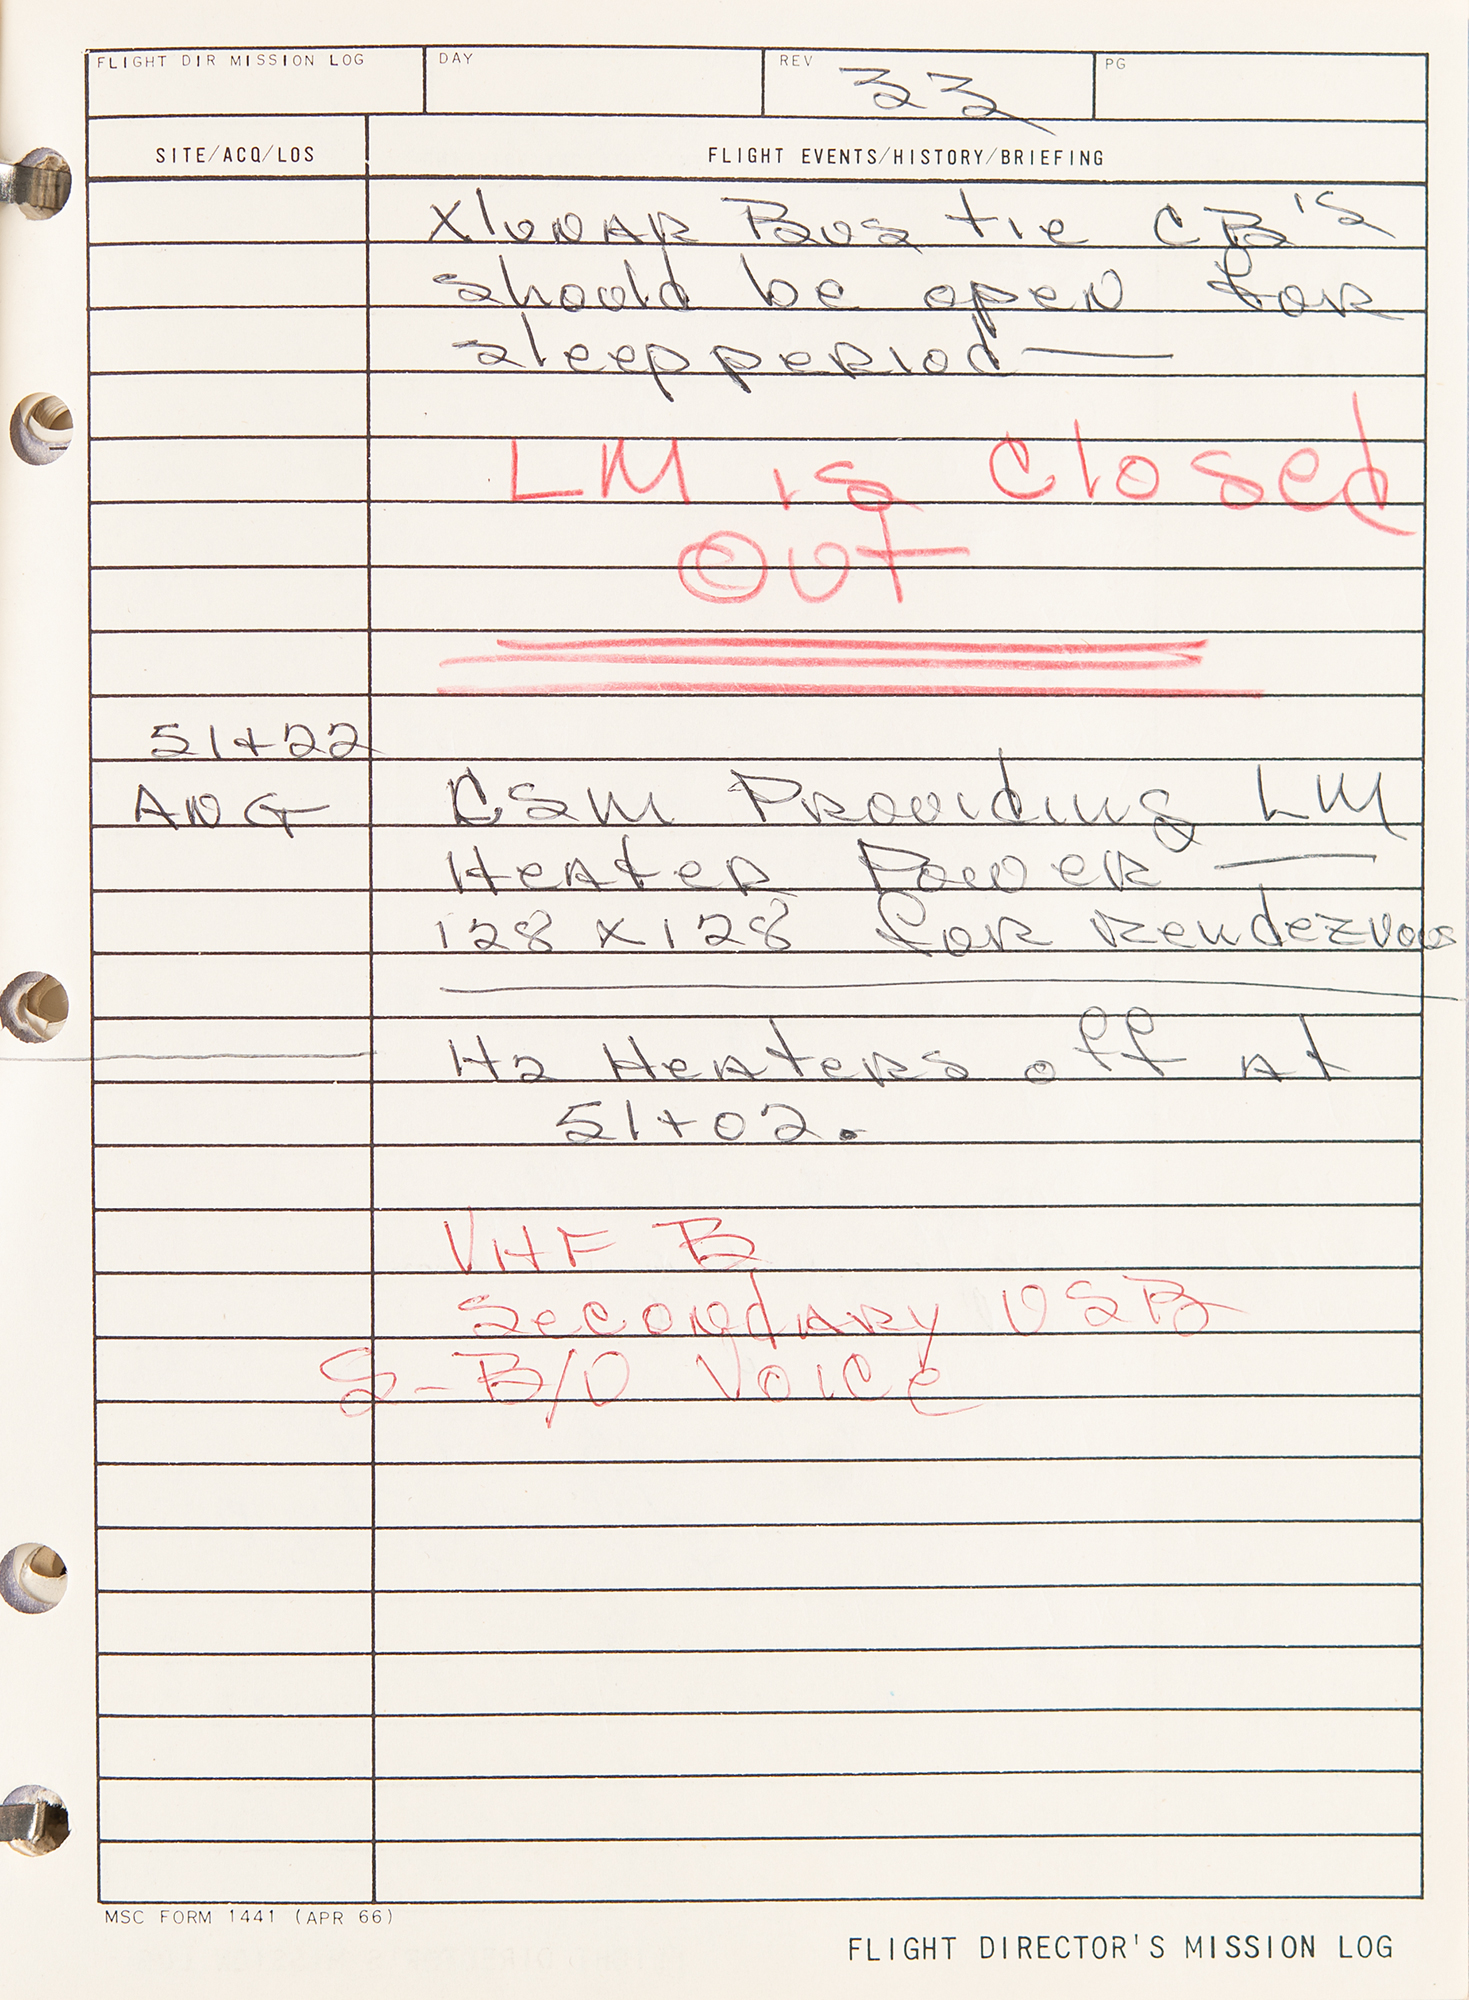 FLIGHT DIR MISSION LOG DAY REV 33 PG
SITE/ACQ/LOS FLIGHT EVENTS/HISTORY/BRIEFING
XlunAR Bus tie CB's
should be open for
sleep period —
LM is Closed
Out
51+22
ANG CSM Providing LM
Heater Power —
128 x 128 for Rendezvous
H2 Heaters off at
51+02.
VHF B
Secondary USB
S-B/U Voice
MSC FORM 1441 (APR 66)
FLIGHT DIRECTOR'S MISSION LOG